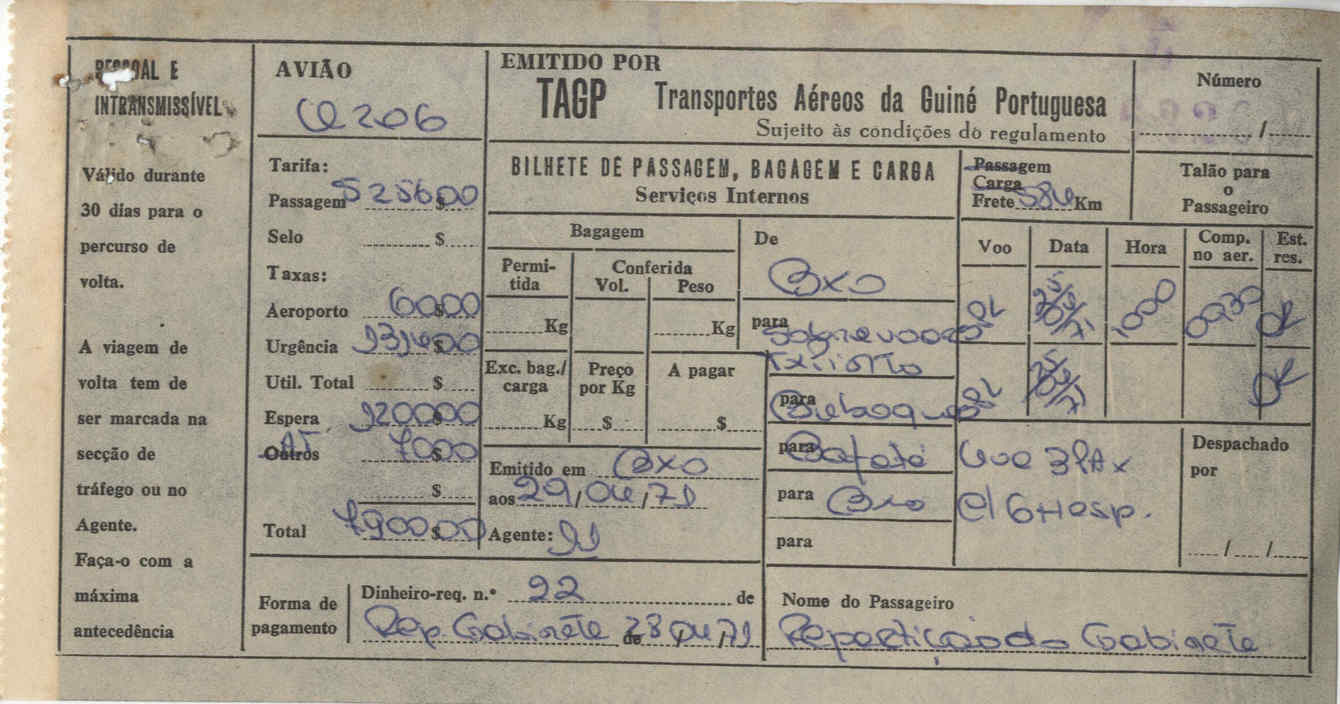 PESSOAL E
INTRANSMISSÍVEL
Válido durante
30 dias para o
percurso de
volta.
A viagem de
volta tem de
ser marcada na
secção de
tráfego ou no
Agente.
Faça-o com a
máxima
antecedência
AVIÃO
CR 206
Tarifa:
Passagem 5256$00
Selo $
Taxas:
Aeroporto 60$00
Urgência $00
Util. Total $
Espera 1200$00
Outros 70$00
$
Total 7900$00
EMITIDO POR
TAGP Transportes Aéreos da Guiné Portuguesa
Sujeito às condições do regulamento
Número
/
BILHETE DE PASSAGEM, BAGAGEM E CARGA
Serviços Internos
Passagem
Carga
Frete 584 Km
Talão para
o
Passageiro
Bagagem
Permitida
Conferida
Vol.
Peso
Kg
Kg
Exc. bag./
carga
Preço
por Kg
A pagar
Kg
$
$
Emitido em BXO
aos 29/04/71
Agente:
De
BXO
para
Sobrevoo
para
para Bafatá
para BXO
para
Voo
Data
Hora
Comp.
no aer.
Est.
res.
25/05/71
1000
0930
OK
25/05/71
OK
Voo 3 PAX
c/ 6H esp.
Despachado
por
/ /
Forma de
pagamento
Dinheiro-req. n.º 22 de
Rep. Gabinete de 28/04/71
Nome do Passageiro
Repartição do Gabinete